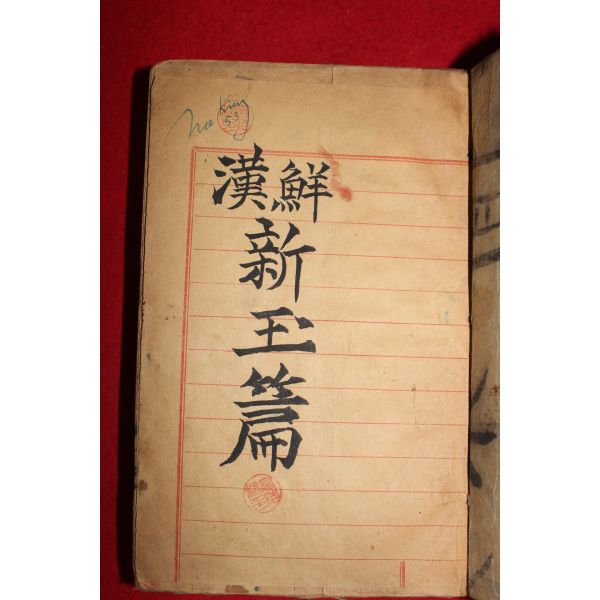 鮮漢
新
玉
篇